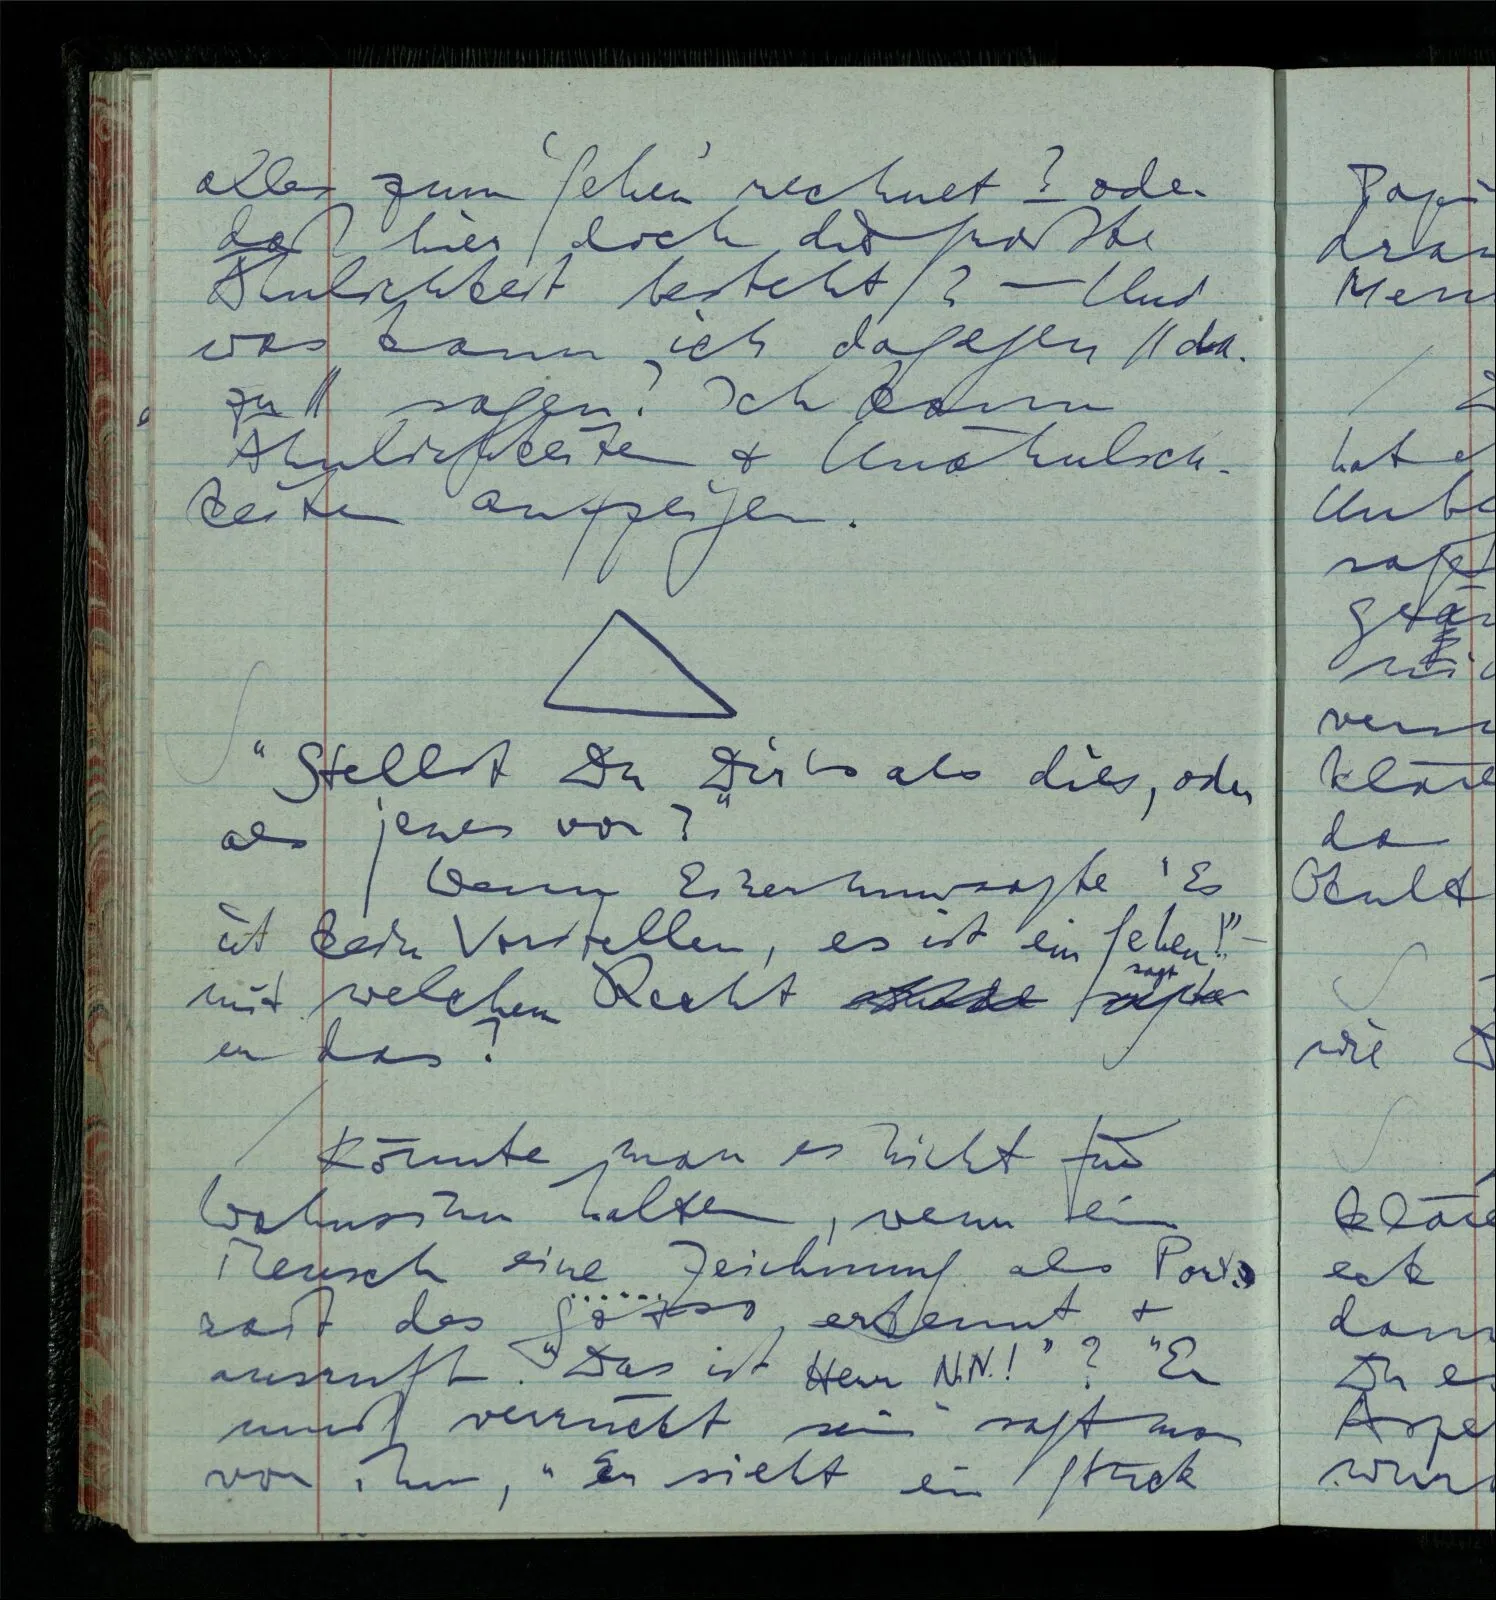 alles zum 'Sehen' rechnet? oder
daß hier doch die größte
Ähnlichkeit besteht? — Und
was kann ich dagegen // da-
zu // sagen? Ich kann
Ähnlichkeiten & Unähnlich-
keiten aufzeigen.
"Stellst Du Dir's als dies, oder
als jenes vor?"
Wenn Einer nun sagte 'Es
ist kein Vorstellen, es ist ein Sehen!" –
mit welchem Recht sagt
er das?
/ Könnte man es nicht für
Wahnsinn halten, wenn ein
Mensch eine Zeichnung als Port-
rait des erkennt &
ausruft "Das ist Herr N.N.!"? "Er
muß verrückt sein" sagt man
von ihm, "Er sieht ein Stück
Papi
dran
Men
/
hat
Unbe
sagt
vern
kläre
da
wie
kläre
eck
dann
Du e
Aspe
wur